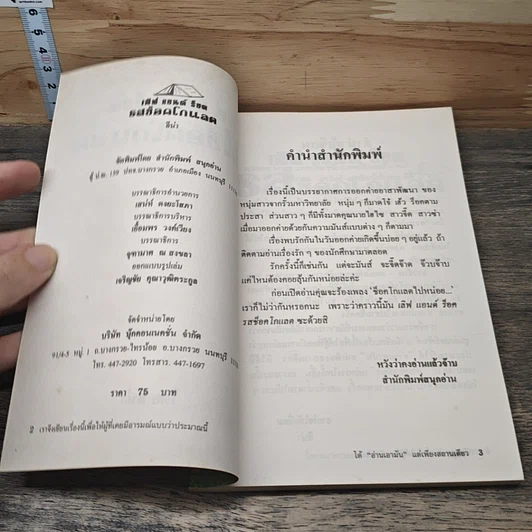 เลิฟ แอนด์ ร็อค
รสช็อคโกแลต
ลีน่า
จัดพิมพ์โดย สำนักพิมพ์ สนุกอ่าน
ตู้ ปณ. 139 ปทจ.บางกรวย อำเภอเมือง นนทบุรี
บรรณาธิการอำนวยการ
เสน่ห์
บรรณาธิการบริหาร
เตือนพร วงศ์เวียง
บรรณาธิการ
จุฑามาศ ณ สงขลา
ออกแบบรูปเล่ม
เจริญชัย คุณาวุฒิตระกูล
จัดจำหน่ายโดย
บริษัท บุ๊คคอนเนคชั่น จำกัด
91/4-5 หมู่ 1 ถ.บางกรวย-ไทรน้อย อ.บางกรวย นนทบุรี
โทร. 447-2920 โทรสาร. 447-1697
ราคา 75 บาท
2 เราจึงเขียนเรื่องนี้เพื่อให้ผู้ที่เคยมีอารมณ์แบบว่าประมาณนี้
คำนำสำนักพิมพ์
เรื่องนี้เป็นบรรยากาศการออกค่ายอาสาพัฒนา ของ
หนุ่มสาวจากรั้วมหาวิทยาลัย หนุ่ม ๆ ก็มาดโจ๋ เสี้ยว ร็อคตาม
ประสา ส่วนสาว ๆ ก็มีทั้งมาดคุณนายไฮโซ สาวจี๊ด สาวซ่า
เมื่อมาออกค่ายด้วยกันความมันส์แบบต่าง ๆ ก็ตามมา
เรื่องพบรักกันในวันออกค่ายเกิดขึ้นบ่อย ๆ อยู่แล้ว ถ้า
ติดตามอ่านเรื่องรัก ๆ ของนักศึกษามาตลอด
รักครั้งนี้ก็เช่นกัน แต่จะมันส์ จะจี๊ดจ๊าด จ๊วบจ๊าบ
แค่ไหนต้องคอยลุ้นกันหน่อยล่ะค่ะ
ก่อนเปิดอ่านคุณจะร้องเพลง 'ช็อคโกแลตไปหน่อย...'
เราก็ไม่ว่ากันหรอกนะ เพราะว่าคราวนี้มัน เลิฟ แอนด์ ร็อค
รสช็อคโกแลต ซะด้วยสิ
หวังว่าคงอ่านแล้วจ๊าบ
สำนักพิมพ์สนุกอ่าน
ได้ "อ่านเอามัน" แต่เพียงสถานเดียว 3